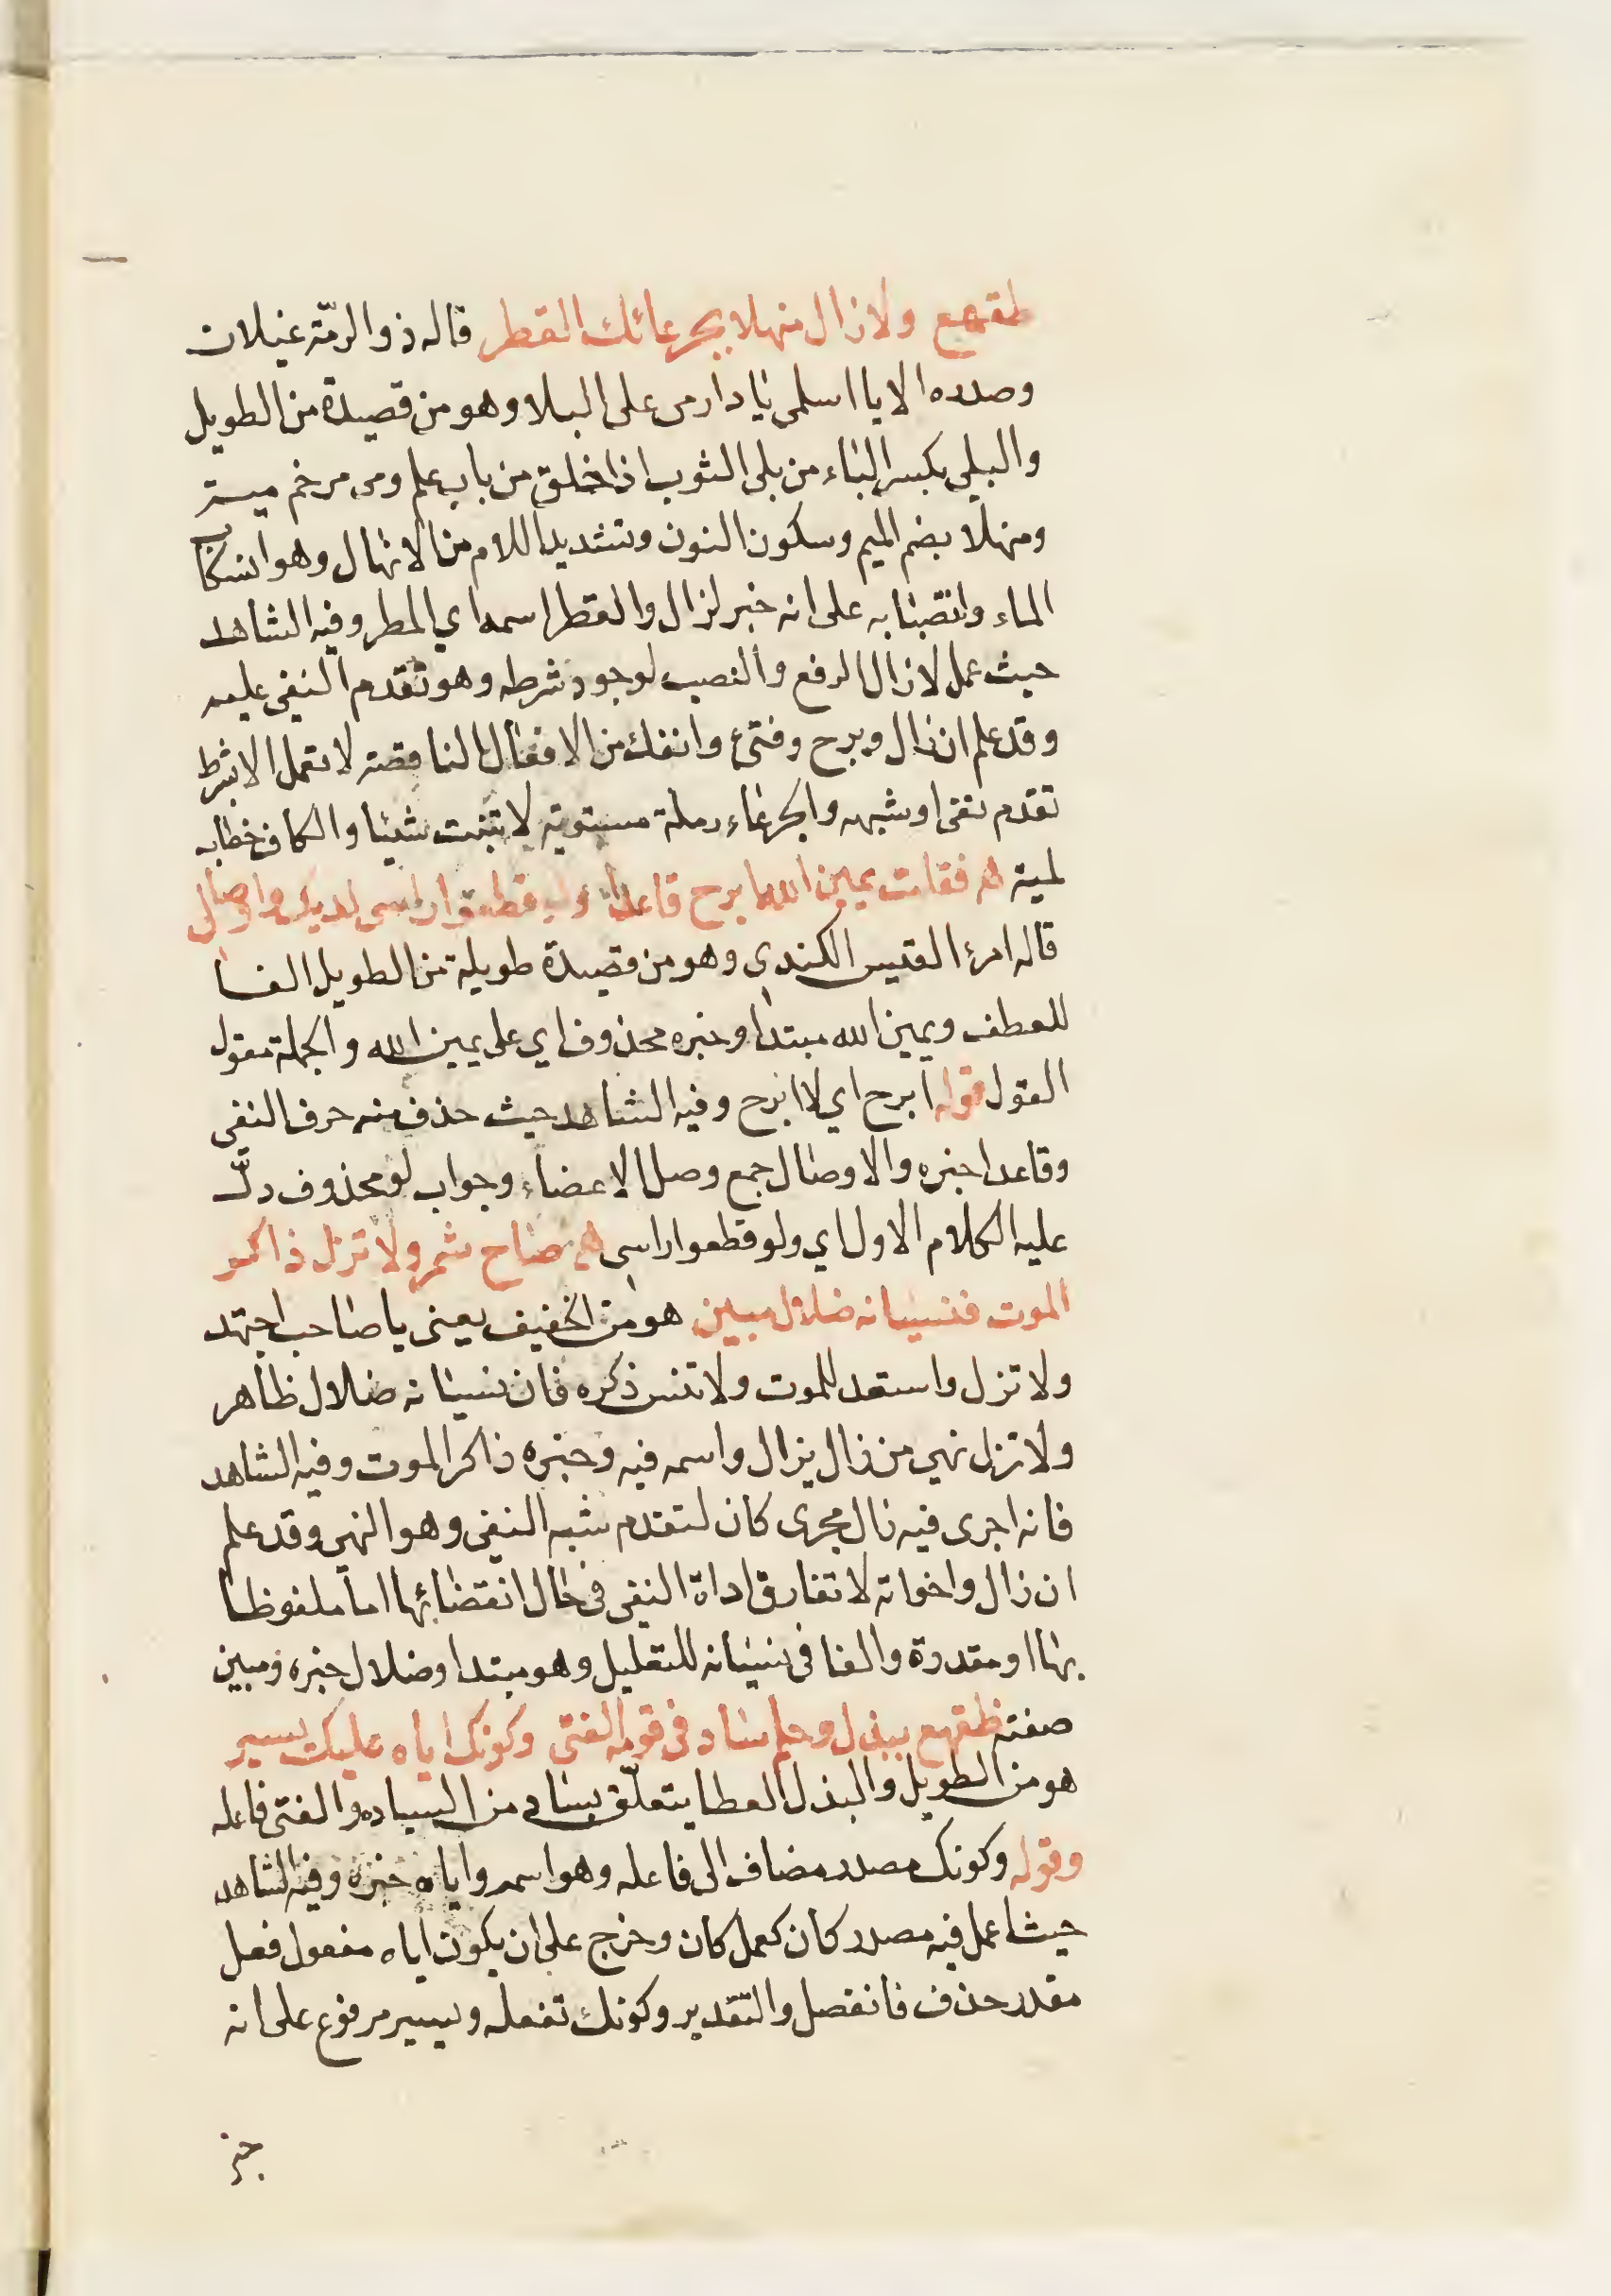 ظقهع ولا زال منهلا بجرعائك القطر قاله ذو الرمّة غيلان
وصدره الا يا اسلمى يا دار مى على البلا وهو من قصيدة من الطويل
والبلى بكسر الباء من بلى الثوب اذا خلق من باب علم ومى مرخم ميتة
ومنهلا بضم الميم وسكون النون وتشديد اللام من الانهال وهو انسكاب
الماء وانتصابه على انه خبر لزال والقطر اسمه اي المطر وفيه الشاهد
حيث عمل لا زال الرفع والنصب لوجود شرطه وهو تقدم النفى عليه
وقد علم ان زال وبرح وفتئ وانفك من الافعال الناقصة لا تعمل الا بشرط
تقدم نفى او شبهه والجرعاء رملة مستوية لا تنبت شيئا والكاف خطاب
لمية هع فقلت يمين الله ابرح قاعدا ولو قطعوا راسى لديك واوصالى
قاله امرئ القيس الكندي وهو من قصيدة طويلة من الطويل الفا
للعطف ويمين الله مبتدا وخبره محذوف اي على يمين الله والجملة مقول
القول قوله ابرح اي لا ابرح وفيه الشاهد حيث حذف منه حرف النفى
وقاعدا خبره والاوصال جمع وصل الاعضاء وجواب لو محذوف دلّ
عليه الكلام الاول اي ولو قطعوا راسى هع صاح شمر ولا تزل ذاكر
الموت فنسيانه ضلال مبين هو من الخفيف يعنى يا صاحب اجتهد
ولا تزل واستعد للموت ولا تنس ذكره فان نسيانه ضلال ظاهر
ولا تزل نهي من زال يزال واسمه فيه وخبره ذاكر الموت وفيه الشاهد
فانه اجرى فيه زال مجرى كان لتقدم شبه النفى وهو النهى وقد علم
ان زال واخواته لا تفارق اداة النفى فى حال انقضائها اما ملفوظا
بها او مقدرة والفا فى نسيانه للتعليل وهو مبتدا وضلال خبره ومبين
صفته ظقهع ببذل وحلم ساد فى قومه الفتى وكونك اياه عليك يسير
هو من الطويل والبذل العطا يتعلّق بساد من السياده والفتى فاعله
وقوله وكونك مصدر مضاف الى فاعله وهو اسمه واياه خبره وفيه الشاهد
حيث اعمل فيه مصدر كان كعمل كان وخرج على ان يكون اياه مفعول فعل
مقدر حذف فانفصل والتقدير وكونك تفعله ويسير مرفوع على انه
خبر